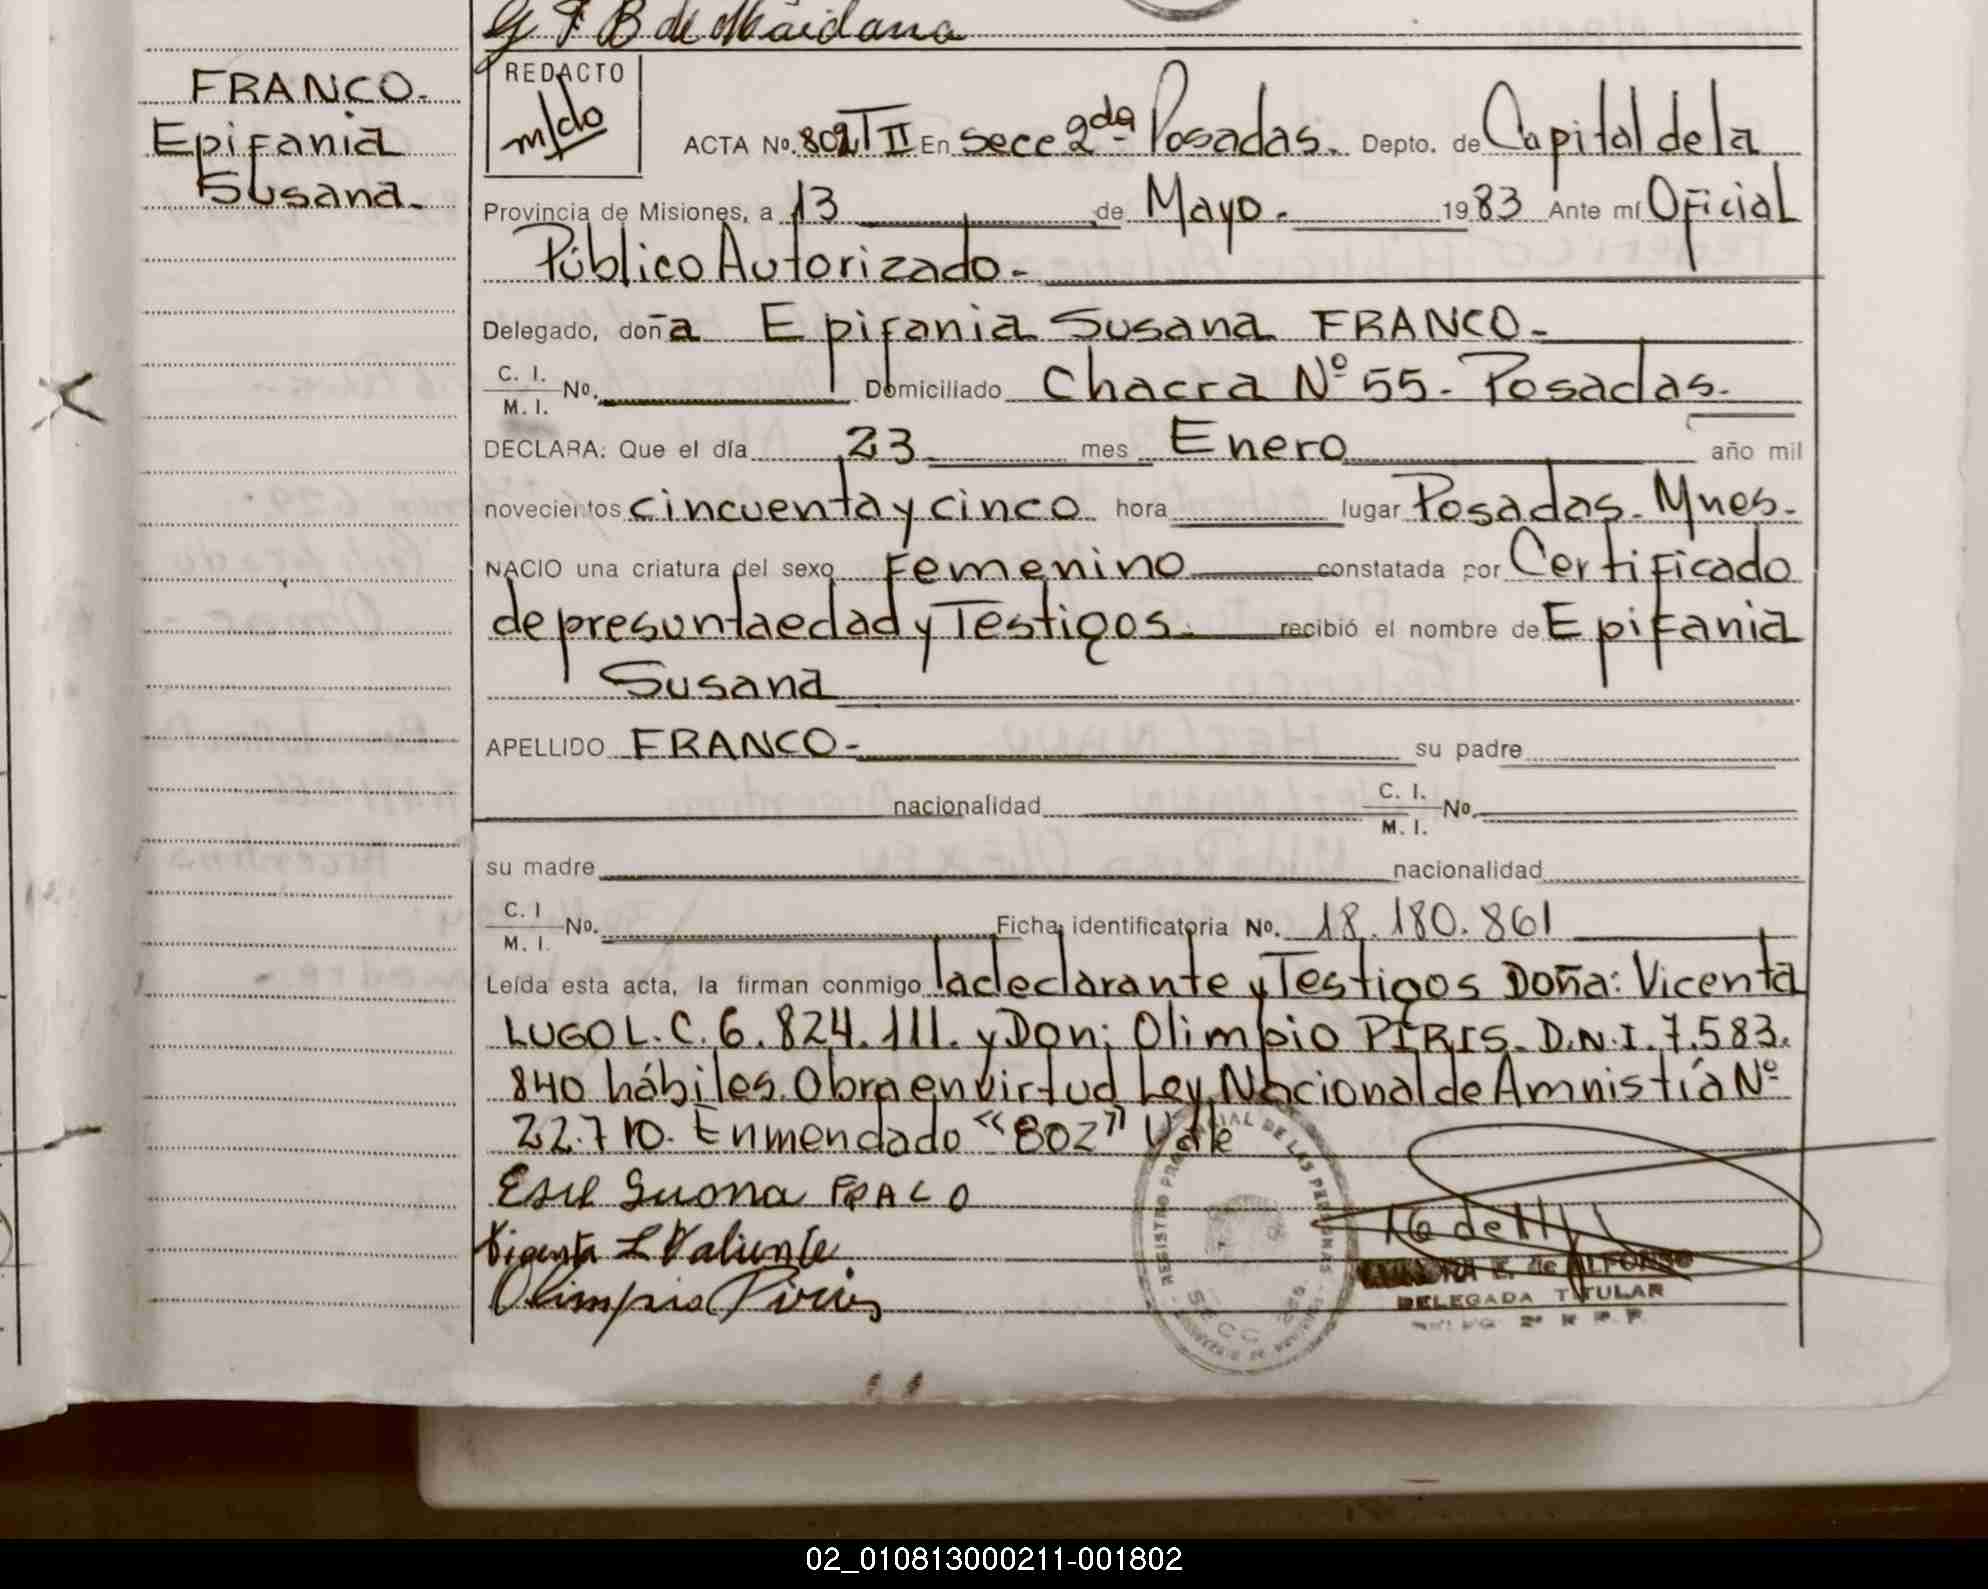 G F B de Maidana
FRANCO.-
Epifania
Susana.-
REDACTO
ACTA No. 802 T II En Secc 2da Posadas. Depto. de Capital de la
Provincia de Misiones, a 13 de Mayo.- 1983 Ante mí Oficial
Público Autorizado.-
Delegado, doña Epifania Susana FRANCO.-
C. I.
M. I. No. Domiciliado Chacra Nº 55.- Posadas.-
DECLARA: Que el día 23 mes Enero año mil
novecientos cincuenta y cinco hora lugar Posadas.- Mnes.-
NACIO una criatura del sexo Femenino constatada por Certificado
de presunta edad y Testigos.- recibió el nombre de Epifania
Susana
APELLIDO FRANCO.- su padre
nacionalidad C. I.
M. I. No.
su madre nacionalidad
C. I
M. I. No. Ficha identificatoria No. 18.180.861
Leída esta acta, la firman conmigo la declarante y Testigos Doña: Vicenta
LUGO L.C. 6.824.111. y Don: Olimpio PIRIS. D.N.I. 7.583.
840 hábiles. Obra en virtud Ley Nacional de Amnistía Nº
22.710. Enmendado "802" Vale
Susana FRACO
Vicenta L Valiente
Olimpio Piris
REGISTRO PROVINCIAL DE LAS PERSONAS
SECC. 2da.
E. de ALFONSO
DELEGADA TITULAR
2ª R.P.P.
02_010813000211-001802